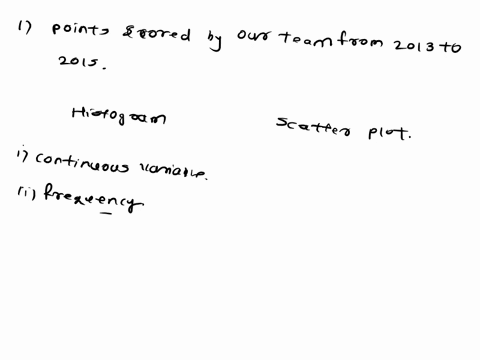 1) points scored by our team from 2013 to
2015.
Histogram
Scatter plot.
i) continuous variable.
(ii) frequency